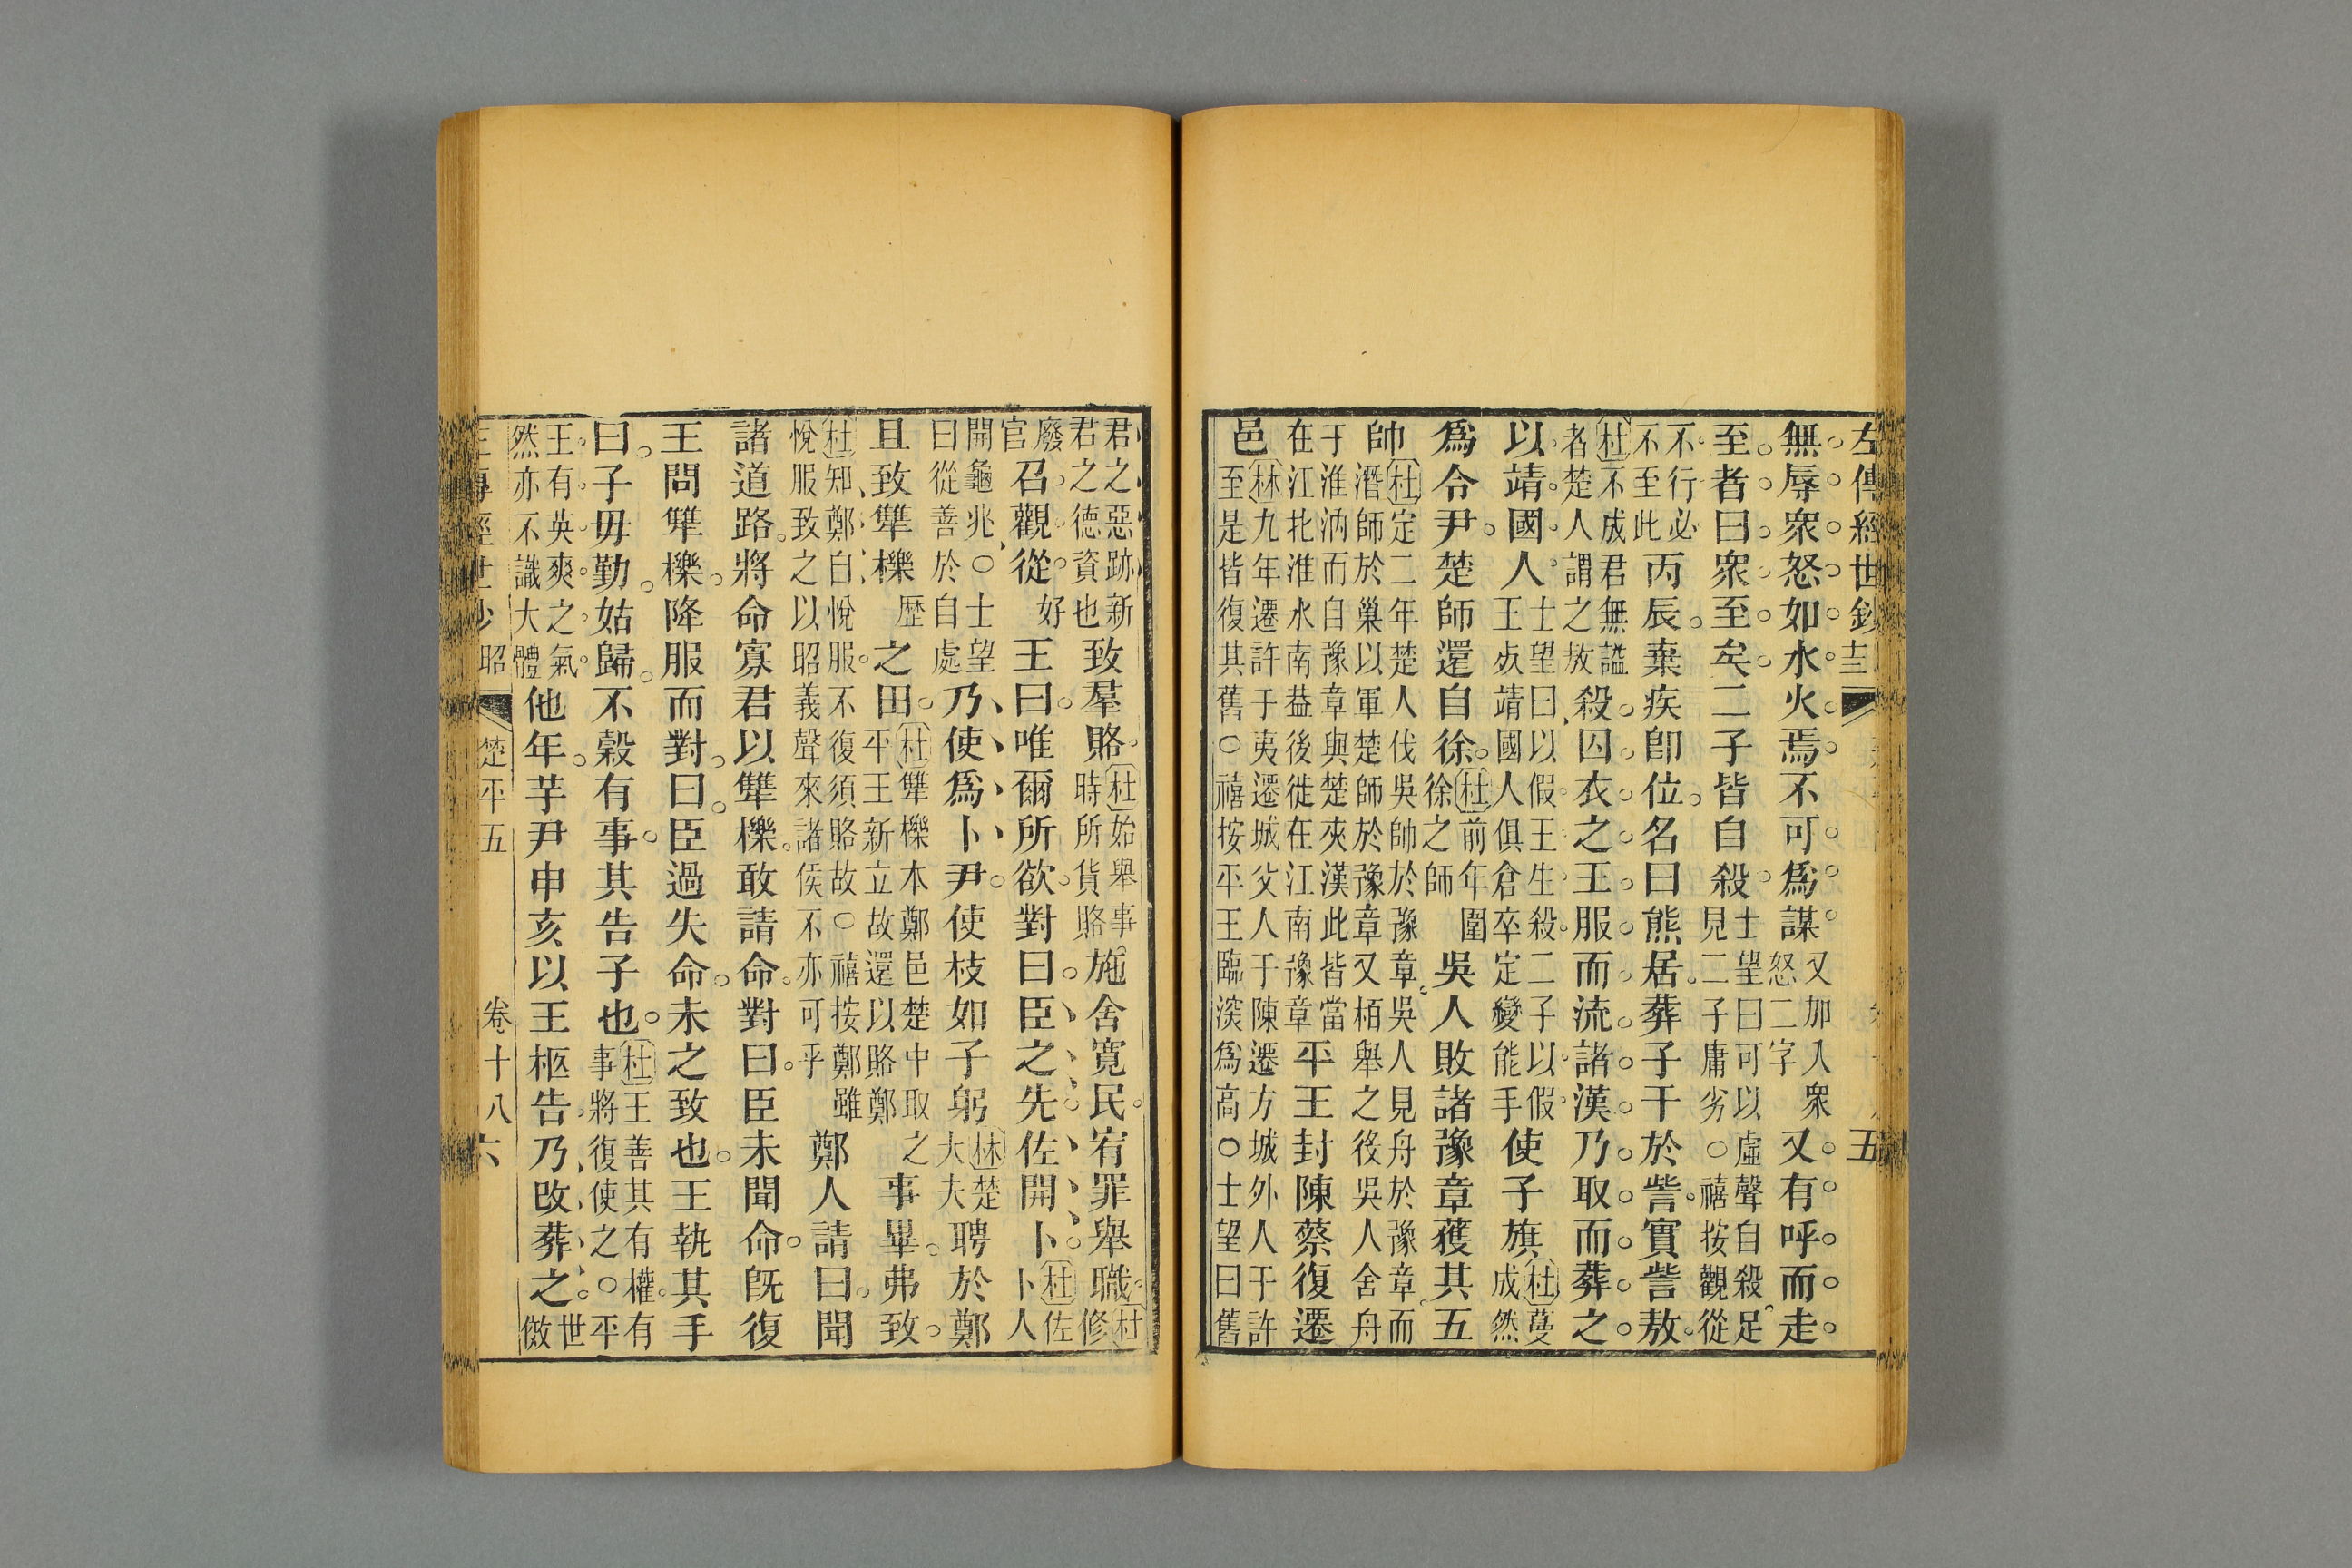 左傳經世鈔 五
無辱衆怒如水火焉不可爲謀又加人衆怒二字又有呼而走
至者曰衆至矣二子皆自殺士望曰可以虛聲自殺足見二子庸劣○禧按觀從
不行必不至此丙辰棄疾卽位名曰熊居葬子干於訾實訾敖
杜不成君無謚者楚人謂之敖殺囚衣之王服而流諸漢乃取而葬之
以靖國人士望曰以假王生殺二子以假王㱠靖國人俱倉卒定變能手使子旗杜蔓成然
爲令尹楚師還自徐杜前年圍徐之師吳人敗諸豫章獲其五
帥杜定二年楚人伐吳帥於豫章吳人見舟於豫章而潛師於巢以軍楚師於豫章又栢舉之役吳人舍舟
于淮汭而自豫章與楚夾漢此皆當在江北淮水南葢後徙在江南豫章平王封陳蔡復遷
邑林九年遷許于夷遷城父人于陳遷方城外人于許至是皆復其舊○禧按平王臨深爲高○士望曰舊
君之惡跡新君之德資也致羣賂杜始舉事時所貨賂施舍寬民宥罪舉職杜修
廢官召觀從好王曰唯爾所欲對曰臣之先佐開卜杜佐卜人
開龜兆○士望曰從善於自處乃使爲卜尹使枝如子躬林楚大夫聘於鄭
且致犨櫟歷之田杜犨櫟本鄭邑楚中取之平王新立故還以賂鄭事畢弗致
杜知鄭自悅服不復須賂故○禧按鄭雖悅服致之以昭義聲來諸侯不亦可乎鄭人請曰聞
諸道路將命寡君以犨櫟敢請命對曰臣未聞命旣復
王問犨櫟降服而對曰臣過失命未之致也王執其手
曰子毋勤姑歸不穀有事其告子也杜王善其有權有事將復使之○平
王有英爽之氣然亦不識大體他年芋尹申亥以王柩告乃改葬之世傲
左傳經世鈔 昭 楚平五 卷十八 六